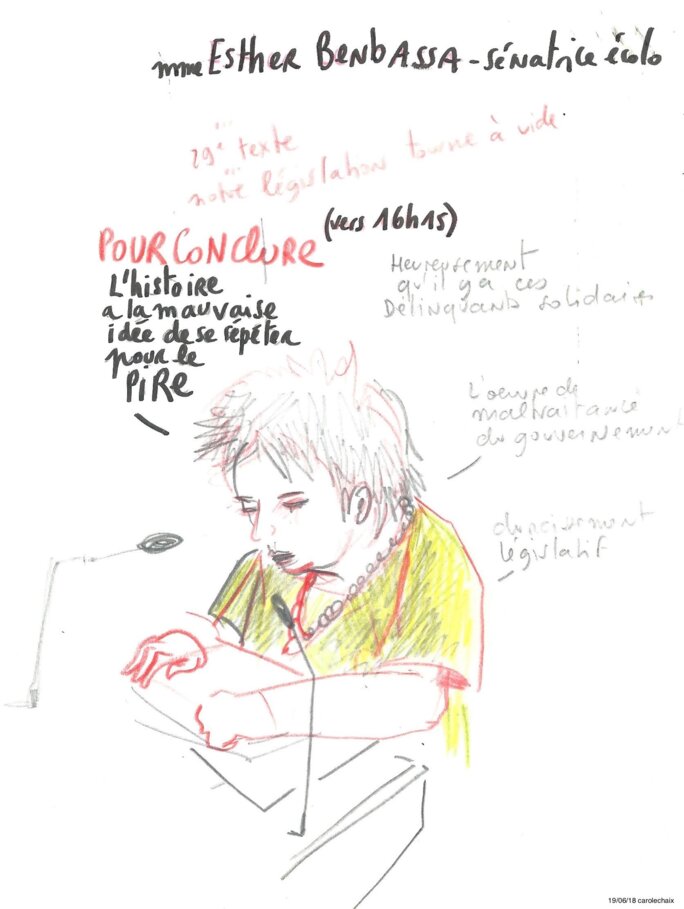 mme Esther Benbassa - sénatrice écolo
29e texte
notre législation tourne à vide.
(vers 16h15)
POUR CONCLURE
L'histoire
a la mauvaise
idée de se répéter
pour le
PIRE
Heureusement
qu'il y a ces
Délinquants solidaires
L'oeuvre de
maltraitance
du gouvernement
durcissement
législatif
19/06/18 carolechaix